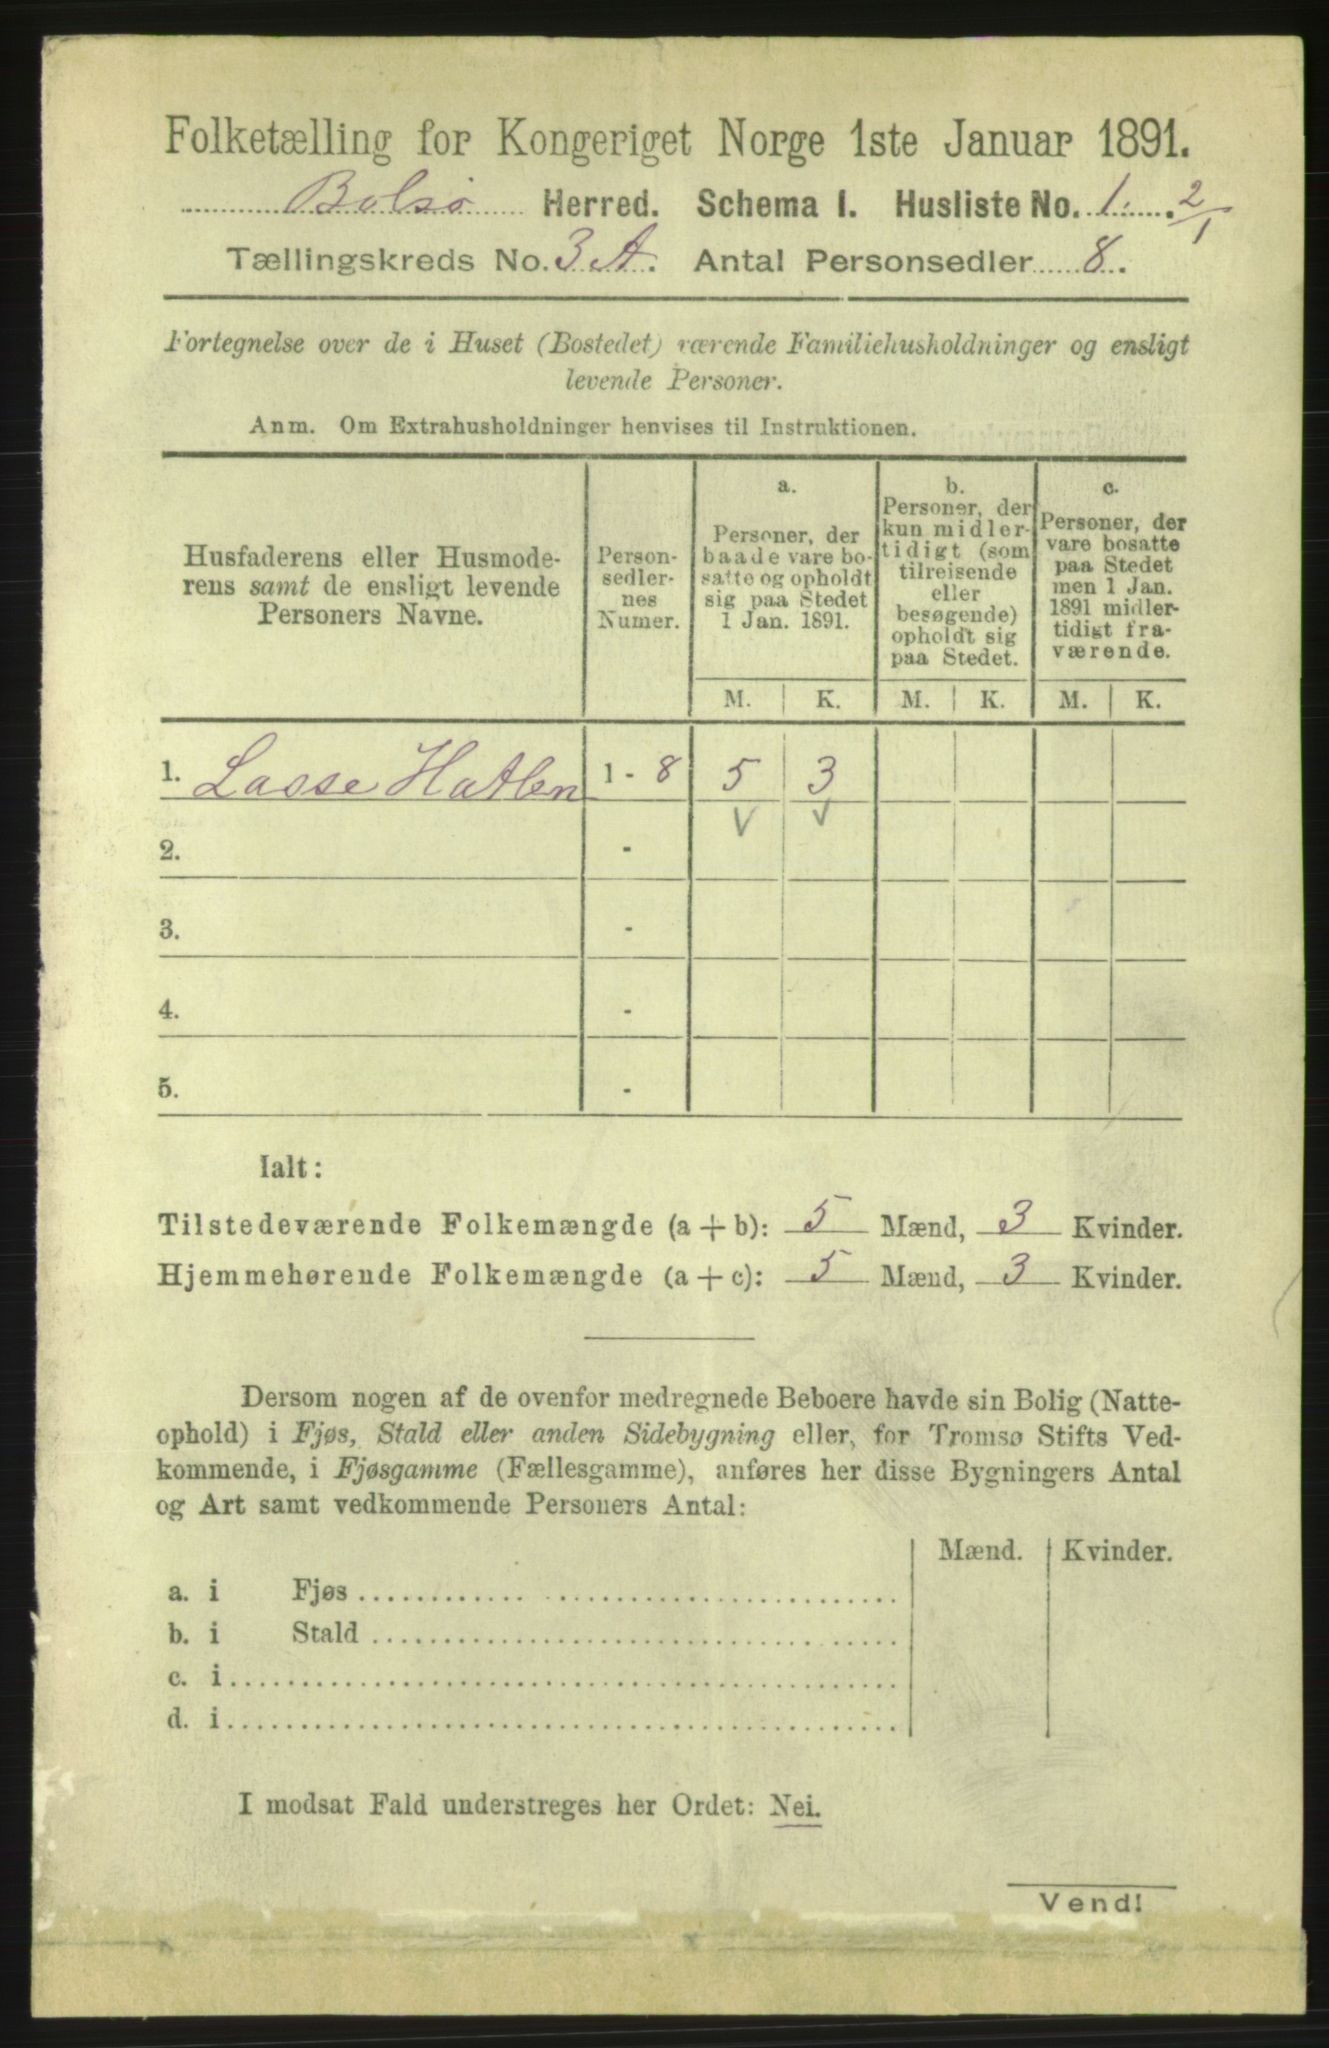 Folketælling for Kongeriget Norge 1ste Januar 1891.
Bolsø Herred. Schema I. Husliste No. 1. 2/1
Tællingskreds No. 3 A. Antal Personsedler 8.
Fortegnelse over de i Huset (Bostedet) værende Familiehusholdninger og ensligt
levende Personer.
Anm. Om Extrahusholdninger henvises til Instruktionen.
Husfaderens eller Husmode-
rens samt de ensligt levende
Personers Navne.
Person-
sedler-
nes
Numer.
a.
Personer, der
baade vare bo-
satte og opholdt
sig paa Stedet
1 Jan. 1891.
b.
Personer, der
kun midler-
tidigt (som
tilreisende
eller
besøgende)
opholdt sig
paa Stedet.
c.
Personer, der
vare bosatte
paa Stedet
men 1 Jan.
1891 midler-
tidigt fra-
værende.
M. K. M. K. M. K.
1. Lasse Hatlen 1 - 8 5 3
2. -
3. -
4. -
5. -
Ialt:
Tilstedeværende Folkemængde (a + b): 5 Mænd, 3 Kvinder.
Hjemmehørende Folkemængde (a + c): 5 Mænd, 3 Kvinder.
Dersom nogen af de ovenfor medregnede Beboere havde sin Bolig (Natte-
ophold) i Fjøs, Stald eller anden Sidebygning eller, for Tromsø Stifts Ved-
kommende, i Fjøsgamme (Fællesgamme), anføres her disse Bygningers Antal
og Art samt vedkommende Personers Antal:
Mænd. Kvinder.
a. i Fjøs
b. i Stald
c. i
d. i
I modsat Fald understreges her Ordet: Nei.
Vend!